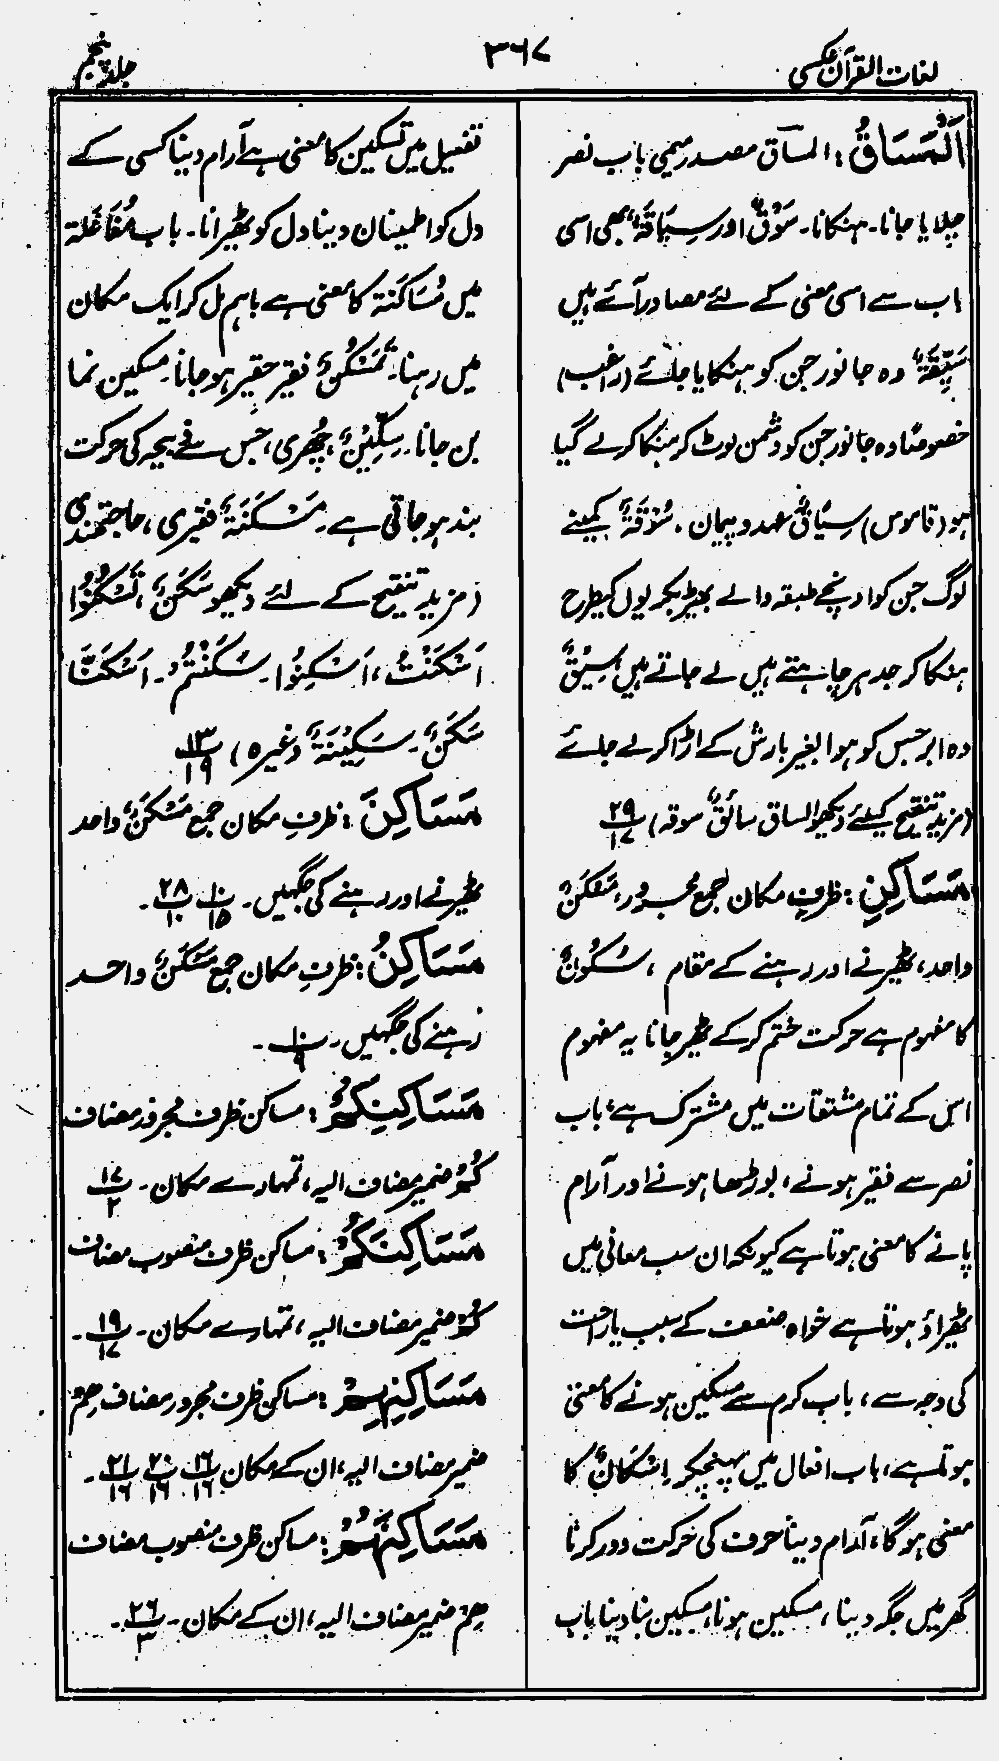 لغات القرآن عکسی
۳۶۷
جلد پنجم
اَلْمَسَاقُ: المساق مصدر میمی باب نصر
چلایا جانا۔ ہنکانا۔ سَوْقٌ اور سِیَاقَۃٌ بھی اسی
باب سے اسی معنی کے لئے مصادر آئے ہیں
سَیِّقَۃٌ وہ جانور جن کو ہنکایا جائے (راغب)
خصوصًا وہ جانور جن کو دشمن لوٹ کر ہنکا کر لے گیا
ہو (قاموس) سِیَاقٌ عہد و پیمان۔ سُوْقَۃٌ کمینے
لوگ جن کو اونچے طبقہ والے بھیڑ بکریوں کیطرح
ہنکا کر جدہر چاہتے ہیں لے جاتے ہیں سِیْقٌ
وہ ابر جس کو ہوا بغیر بارش کے اڑا کر لے جائے
(مزید تنقیح کیلئے دیکھو الساق سائق سوقہ) ۲۹/۱۷
مَسَاکِنِ: ظرفِ مکان جمع مجرور، مَسْکَنٌ
واحد، ٹھیرنے اور رہنے کے مقام، سُکُوْنٌ
کا مفہوم ہے حرکت ختم کر کے ٹھیر جانا یہ مفہوم
اس کے تمام مشتقات میں مشترک ہے، باب
نصر سے فقیر ہونے، بوڑھا ہونے اور آرام
پانے کا معنی ہوتا ہے کیونکہ ان سب معانی میں
ٹھیراؤ ہوتا ہے خواہ ضعف کے سبب یا راحت
کی وجہ سے، باب کرم سے مسکین ہونے کا معنی
ہوتا ہے، باب افعال میں پہنچکر اِسْکَانٌ کا
معنی ہوگا، آرام دینا حرف کی حرکت دور کرنا
گھر میں جگہ دینا، مسکین ہونا، مسکین بنا دینا باب
تفعیل میں تسکین کا معنی ہے آرام دینا کسی کے
دل کو اطمینان دینا دل کو ٹھیرانا۔ باب مُفَاعَلَۃ
میں مُسَاکَنَۃ کا معنی ہے باہم مل کر ایک مکان
میں رہنا۔ تَمَسْکُنٌ فقیر حقیر ہو جانا۔ مسکین نما
بن جانا۔ سِکِّیْنٌ، چُھری، جس سے ذبیحہ کی حرکت
بند ہو جاتی ہے۔ مَسْکَنَۃٌ فقیری، حاجتمندی
(مزید تنقیح کے لئے دیکھو سَکَنٌ، تَسْکُنُوْا
اَسْکَنْتُ، اَسْکِنُوا۔ سَکَنْتُمْ۔ اَسْکَنَّا
سَکَنٌ۔ سَکِیْنَۃٌ وغیرہ) ۱۳/۱۹
مَسَاکِنَ: ظرفِ مکان جمع مَسْکَنٌ، واحد
ٹھیرنے اور رہنے کی جگہیں۔ ۱۰/۱۵ ۲۸/۱۰۔
مَسَاکِنُ: ظرفِ مکان جمع مَسْکَنٌ واحد
رہنے کی جگہیں۔ ۱۰/۹۔
مَسَاکِنِکُمْ: مساکن ظرف مجرور مضاف
کُمْ ضمیر مضاف الیہ، تمہارے مکان۔ ۱۷/۲
مَسَاکِنَکُمْ: مساکن ظرف منصوب مضاف
کُمْ ضمیر مضاف الیہ، تمہارے مکان۔ ۱۹/۱۷۔
مَسَاکِنِہِمْ: مساکن ظرف مجرور مضاف ھِمْ
ضمیر مضاف الیہ، ان کے مکان ۱۶/۱۶ ۲۰/۱۶ ۲۱/۱۶۔
مَسَاکِنَہُمْ: مساکن ظرف منصوب مضاف
ھِمْ ضمیر مضاف الیہ، ان کے مکان۔ ۲۶/۳۔